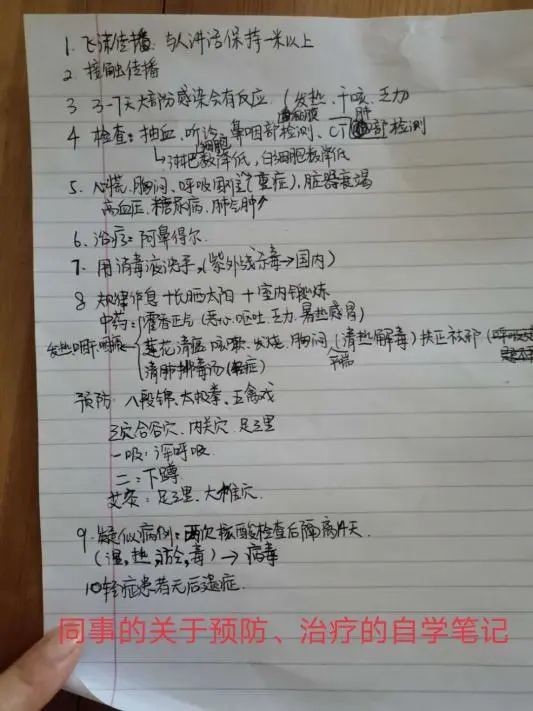 1. 飞沫传播：与人讲话保持一米以上
2 接触传播
3 3-7天大部分感染会有反应（发热、干咳、乏力
4 检查：抽血、听诊、鼻咽部检测、CT肺部检测
细胞
↳淋巴数降低，白细胞数降低
5、心慌、胸闷、呼吸困难（重症）、脏器衰竭
高血压、糖尿病、肺气肿
6、治疗：阿鼻得尔
7、用消毒液洗手。（紫外线杀毒→国内）
8 规律作息+长晒太阳+室内锻炼
中药：藿香正气（恶心、呕吐、乏力、暑热感冒）
发热咽干咽痛 莲花清瘟 咳嗽、发烧、胸闷（清热解毒）扶正祛邪
平喘
清肺排毒汤（轻症）
预防 八段锦、太极拳、五禽戏
三穴合谷穴、内关穴、足三里
一吸：深呼吸
二：下蹲
艾灸：足三里、大椎穴
9、疑似病例：两次核酸检查后隔离14天
（湿，热，毒）→病毒
10轻症患者无后遗症
同事的关于预防、治疗的自学笔记